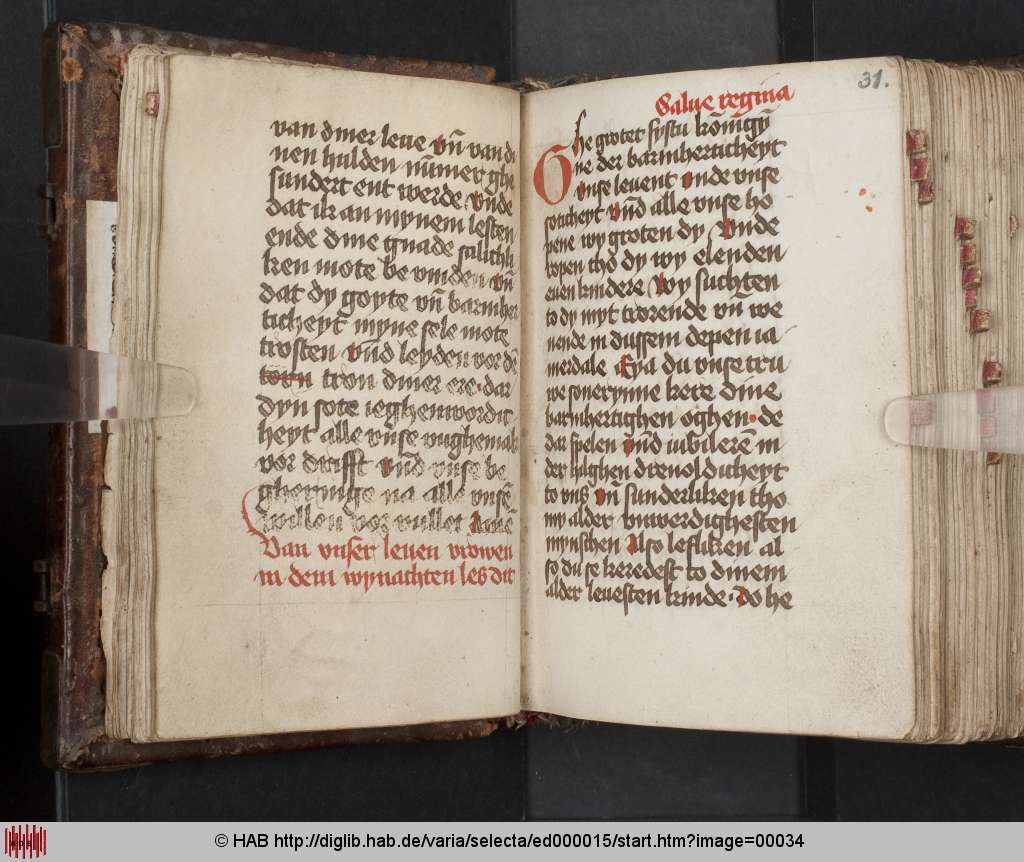 van diner leue vñ van di
nen hulden nūmer ghe
sundert ent werde vnde
dat ik an mynem lesten
ende dine gnade salichli
ken mote be vinden vñ
dat dy goyte vñ barmher
ticheyt myne sele mote
trosten vñd leyden vor dē
torn tron diner ere · dar
dyn sote ieghenwordic
heyt alle vnse vnghemak
vor drifft vñd vnse be
gheringe na alle vnsē
willen vor vullet Amē
Van vnser leuen vrowen
in dem wynachten les dit
31.
Salue regina
Ghe grotet systu kōnigȳ
ne der barmherticheyt
vnse leuent vnde vnse
soticheyt vñd alle vnse ho
pene wy groten dy vnde
ropen tho dy wy elenden
euen kindere wy suchten
to dy myt trorende vñ we
nende in dussem depen ia
merdale Eya du vnse tru
we sonerynne kere dine
barmhertighen oghen · de
dar spelen vñd iubilerē in
der hilghen dreuoldicheyt
to vns vñ sunderliken tho
my alder vnwerdighesten
mynschen Also lefliken al
so du se keredest to dinem
alder leuesten kinde · do he
© HAB http://diglib.hab.de/varia/selecta/ed000015/start.htm?image=00034